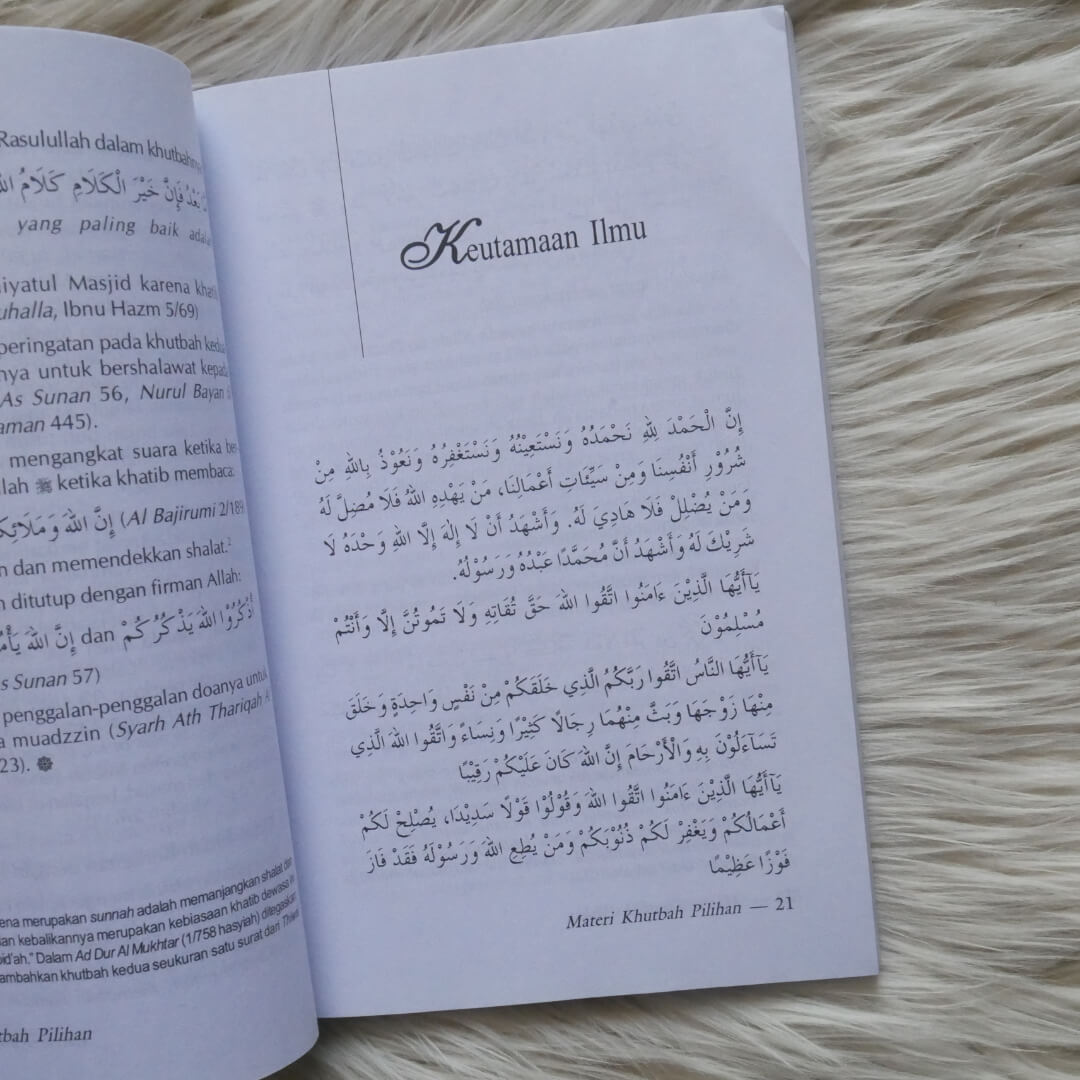 Rasulullah dalam khutbahnya
بَعْدُ فَإِنَّ خَيْرَ الْكَلَامِ كَلَامُ
yang paling baik adalah
Masjid karena
Ibnu Hazm 5/69)
peringatan pada khutbah kedua
untuk bershalawat kepada
As Sunan 56, Nurul Bayan
445).
mengangkat suara ketika
ﷺ ketika khatib membaca:
إِنَّ اللهَ وَمَلَائِكَ (Al Bajirumi 2/189
dan memendekkan shalat.²
ditutup dengan firman Allah:
إِنَّ اللهَ يَأْمُ dan أُذْكُرُوْا اللهَ يَذْكُرْكُمْ
Sunan 57)
penggalan-penggalan doanya untuk
muadzzin (Syarh Ath Thariqah
23).
merupakan sunnah adalah memanjangkan shalat dan
kebalikannya merupakan kebiasaan khatib dewasa
Dalam Ad Dur Al Mukhtar (1/758 hasyiah) ditegaskan
khutbah kedua seukuran satu surat dari
Pilihan
Keutamaan Ilmu
إِنَّ الْحَمْدَ لِلَّهِ نَحْمَدُهُ وَنَسْتَعِيْنُهُ وَنَسْتَغْفِرُهُ وَنَعُوْذُ بِاللهِ مِنْ
شُرُوْرِ أَنْفُسِنَا وَمِنْ سَيِّئَاتِ أَعْمَالِنَا، مَنْ يَهْدِهِ اللهُ فَلَا مُضِلَّ لَهُ
وَمَنْ يُضْلِلْ فَلَا هَادِيَ لَهُ. وَأَشْهَدُ أَنْ لَا إِلٰهَ إِلَّا اللهِ وَحْدَهُ لَا
شَرِيْكَ لَهُ وَأَشْهَدُ أَنَّ مُحَمَّدًا عَبْدُهُ وَرَسُوْلُهُ.
يَاأَيُّهَا الَّذِيْنَ ءَامَنُوا اتَّقُوا اللهَ حَقَّ تُقَاتِهِ وَلَا تَمُوتُنَّ إِلَّا وَأَنْتُمْ
مُسْلِمُوْنَ
يَاأَيُّهَا النَّاسُ اتَّقُوا رَبَّكُمُ الَّذِي خَلَقَكُمْ مِنْ نَفْسٍ وَاحِدَةٍ وَخَلَقَ
مِنْهَا زَوْجَهَا وَبَثَّ مِنْهُمَا رِجَالًا كَثِيْرًا وَنِسَاءً وَاتَّقُوا اللهَ الَّذِي
تَسَاءَلُوْنَ بِهِ وَالْأَرْحَامَ إِنَّ اللهَ كَانَ عَلَيْكُمْ رَقِيْبًا
يَاأَيُّهَا الَّذِيْنَ ءَامَنُوا اتَّقُوا اللهَ وَقُوْلُوْا قَوْلًا سَدِيْدَا، يُصْلِحْ لَكُمْ
أَعْمَالَكُمْ وَيَغْفِرْ لَكُمْ ذُنُوْبَكُمْ وَمَنْ يُطِعِ اللهَ وَرَسُوْلَهُ فَقَدْ فَازَ
فَوْزًا عَظِيْمًا
Materi Khutbah Pilihan — 21